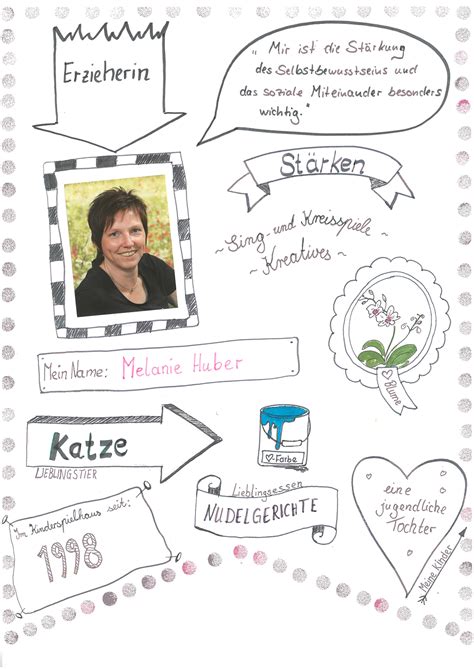 Erzieherin
„Mir ist die Stärkung
des Selbstbewusstseins und
das soziale Miteinander besonders
wichtig."
Stärken
~Sing- und Kreisspiele~
~Kreatives~
♡ Blume
Mein Name: Melanie Huber
Katze
LIEBLINGSTIER
♡-Farbe
Lieblingsessen
NUDELGERICHTE
eine
jugendliche
Tochter
Meine Kinder
Im Kinderspielhaus seit:
1998